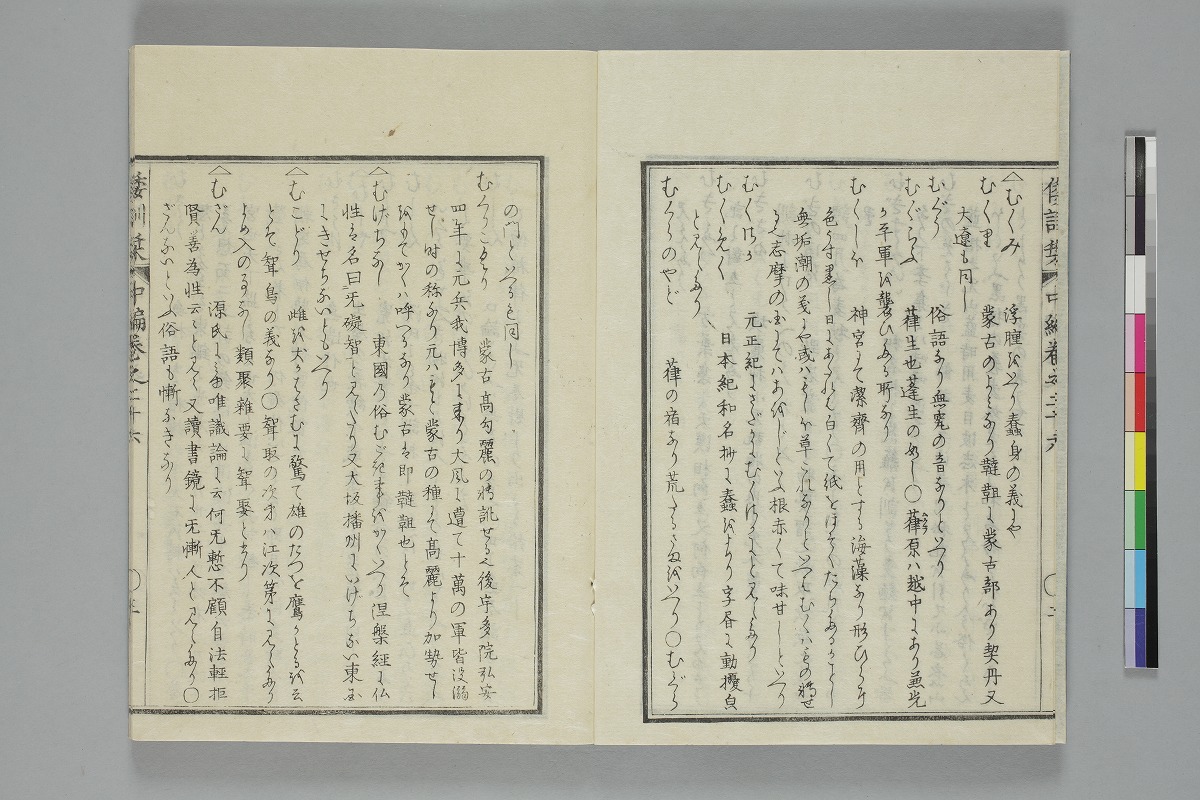 〈むくみ 浮腫をいへり蠢身の義にや
むくり 蒙古のよみなり韃靼に蒙古部あり契丹又
大遼も同し
むぐう 俗語なり無窮の音なりといへり
むぐらふ 葎生也蓬生の如し〇葎原ハ越中にあり
か平軍を襲ひし所なり
むくしほ 神宮にて潔齊の用とする海藻なり形ひしきに
色かす黒し日にあつれハ白くて紙をほそくたちたるかことし
無垢潮の義にや或ハもしほ草これなりといへりむくハもの轉せ
る也志摩の国にてハあをじしといふ根赤くて味甘しといへり
むくつか 元正紀にきざかにむくつかによと見えたり
むくめく 日本紀和名抄に蠢をよめり字書に動擾皃
と見えたり
むぐらのやど 葎の宿なり荒たるさまをいへり〇むぐら
の門といへるも同し
むくりこくり 蒙古高勾麗の轉訛せる也後宇多院弘安
四年に元兵我博多に来り大風に遭て十萬の軍皆没溺
せし時の称なり元ハもと蒙古の種にて高麗より加勢せし
をもてかくハ呼つるなり蒙古ハ即韃靼也とそ
〈むげちなし 東國の俗むごき事をかくいへり涅槃経に仏
性ハ名曰无礙智と見えたり又大坂播州にいけちない東国
にきせちないともいへり
〈むこどり 雌を犬かはさむに驚て雄のたつを鷹かとるを云
とそ聟鳥の義なり〇聟取の次第ハ江次第に見えたり
よめ入のる 類聚雜要に聟娶とあり
〈むざん 源氏にみゆ唯識論に云何无慙不顧自法輕拒
賢善為性云云と見ゆ又讀書鏡に无慚人と見えたり〇
ざんないといふ俗語も慚なきなり
倭訓栞 中編巻之二十六